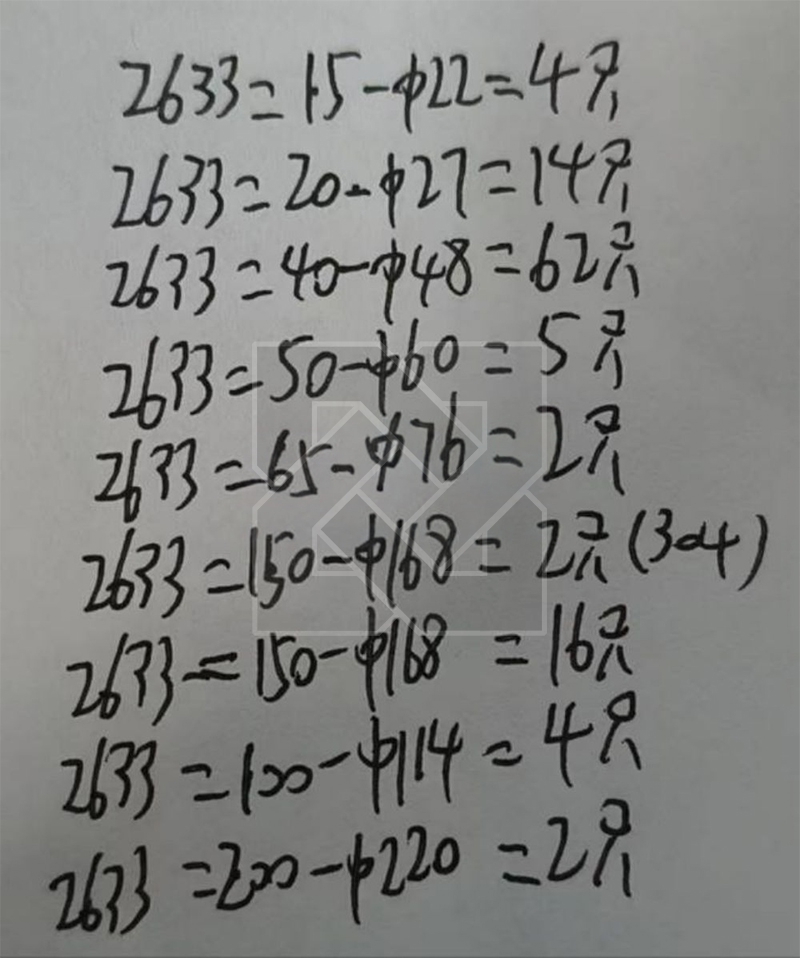 2633=15-φ22=4只
2633=20-φ27=14只
2633=40-φ48=62只
2633=50-φ60=5只
2633=65-φ76=2只
2633=150-φ168=2只(304)
2633=150-φ168=16只
2633=100-φ114=4只
2633=200-φ220=2只